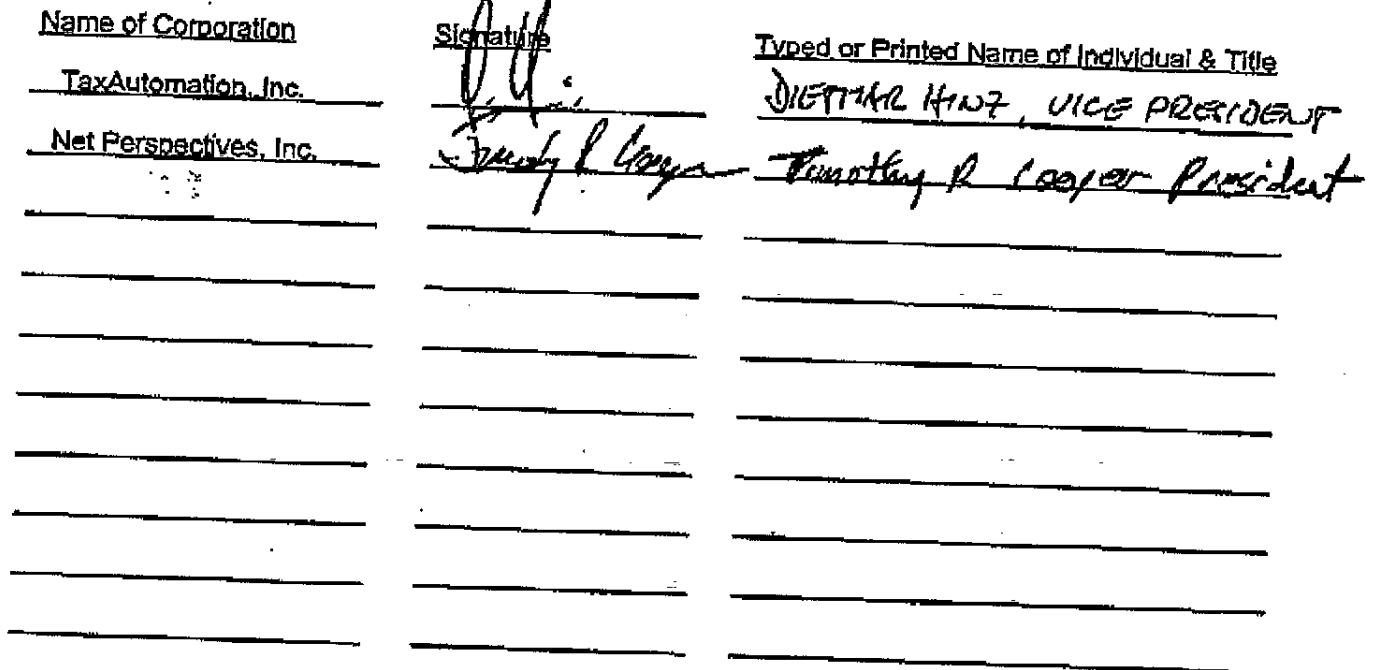 Name of Corporation Signature Typed or Printed Name of Individual & Title
TaxAutomation, Inc. DIETMAR HINZ, VICE PRESIDENT
Net Perspectives, Inc. Timothy R Cooper President